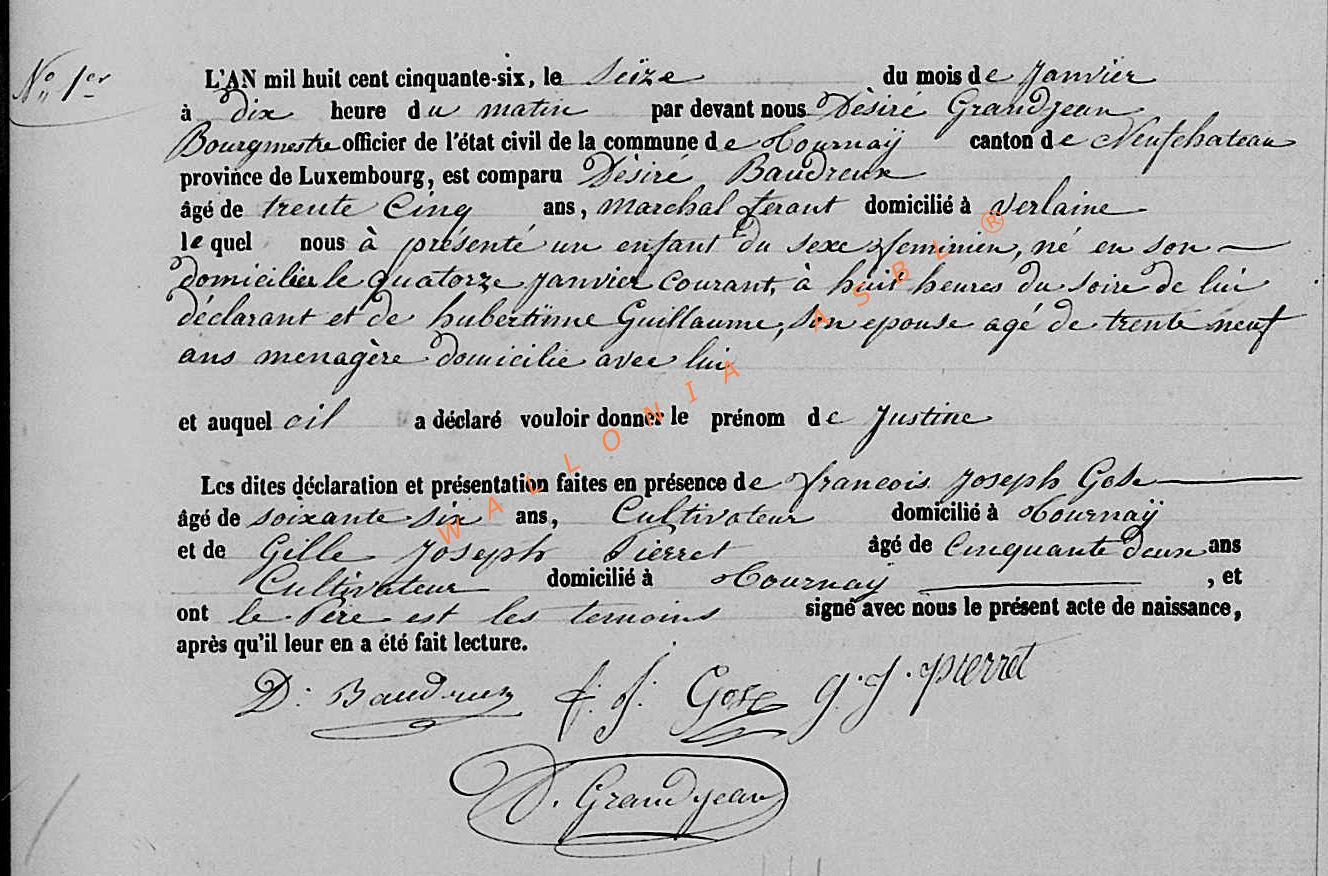 N° 1er
L'AN mil huit cent cinquante-six, le Seize du mois de Janvier
à dix heure du matin par devant nous Dèsiré Grandjean
Bourgmestre officier de l'état civil de la commune de Tournaÿ canton de Neufchateau
province de Luxembourg, est comparu Dèsiré Baudreux
âgé de trente Cinq ans, marchal ferant domicilié à Verlaine
le quel nous à présenté un enfant du sexe feminien, né en son
domicilier le quatorze Janvier courant, à huit heures du soire de lui
déclarant et de hubertinne Guillaume, son epouse agé de trente neuf
ans menagère domicilie avec lui
et auquel oil a déclaré vouloir donner le prénom de Justine
Les dites déclaration et présentation faites en présence de francois Joseph Gose
âgé de soixante six ans, Cultivateur domicilié à Tournaÿ
et de Gille Joseph Pierret âgé de Cinquante deux ans
Cultivateur domicilié à Tournaÿ , et
ont le Père est les temoins signé avec nous le présent acte de naissance,
après qu'il leur en a été fait lecture.
D. Baudreux f. J. Gose g. J. pierret
D. Grandjean
WALLONIA ASBL ®